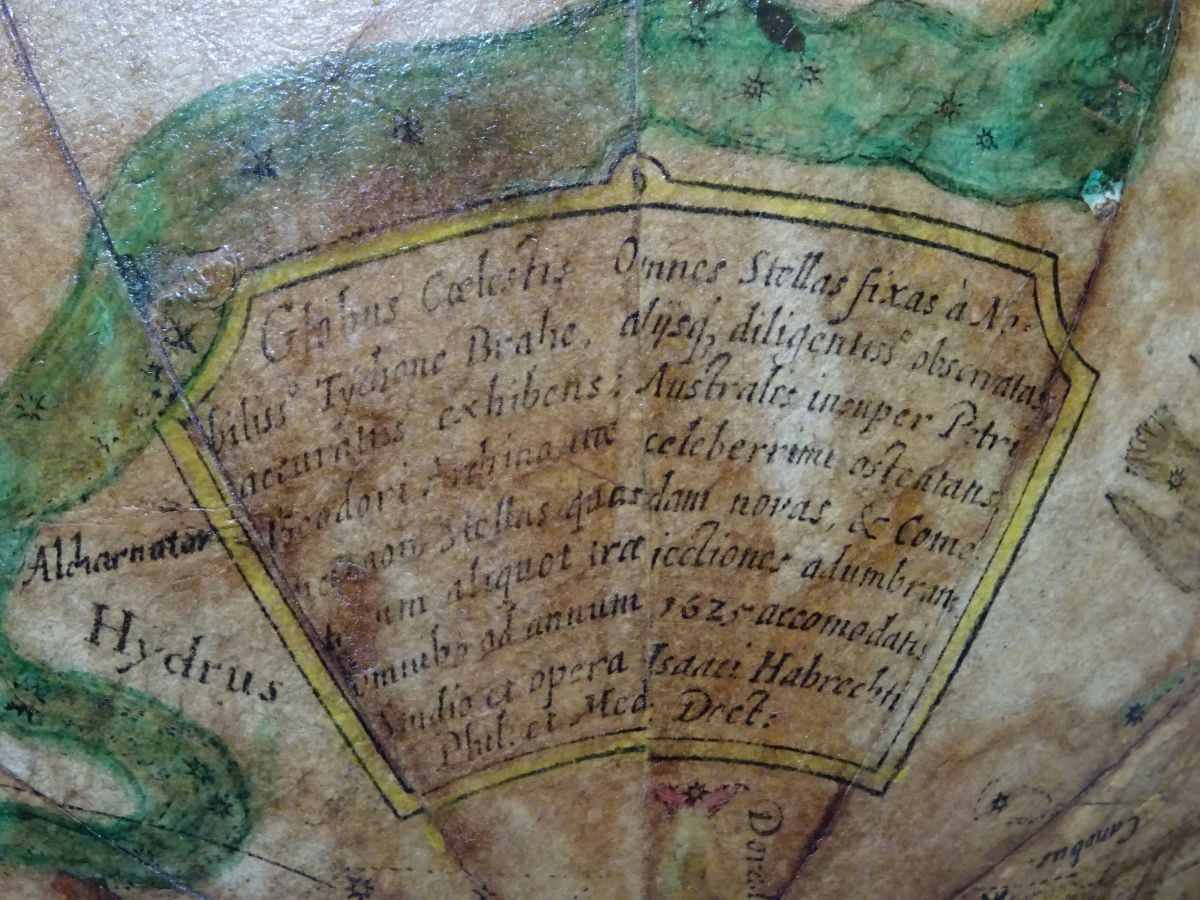 Globus Cœlestis Omnes Stellas fixas à No-
biliss.º Tychone Brahe, alijsq, diligentiss.º observatas
accuratiss exhibens; Australes insuper Petri
Theodori celeberrimi ostentans,
Stellas quasdam novas, & Come
aliquot træ iectiones adumbrans,
omnibꝫ ad annum 1625 accomodatis
Studio et opera Isaaci Habrechti
Phil. et Med. Dręt:
Alcharnatar
Hydrus
Canobus.